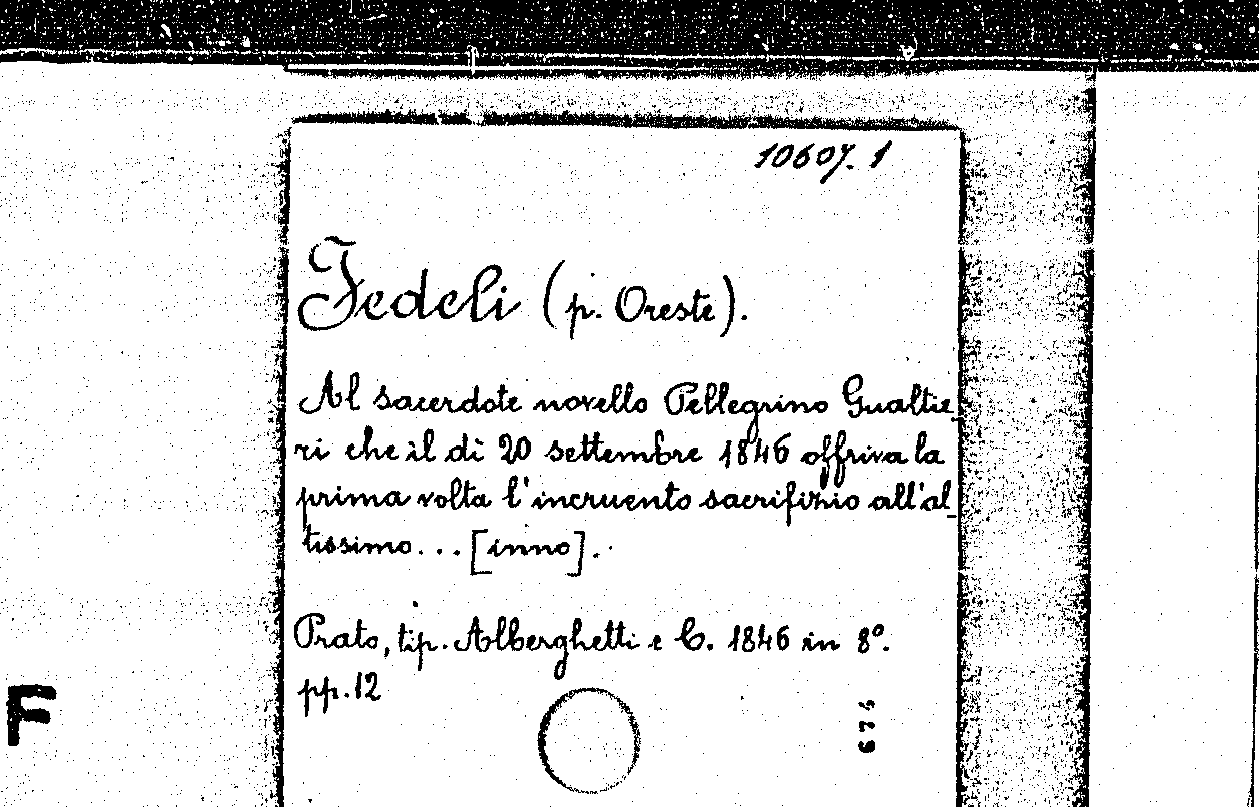 10607. 1
Fedeli (p. Oreste).
Al sacerdote novello Pellegrino Gualtie_
ri che il dì 20 settembre 1846 offriva la
prima volta l'incruento sacrifizio all'al_
tissimo... [inno].
Prato, tip. Alberghetti e C. 1846 in 8º.
pp. 12
F